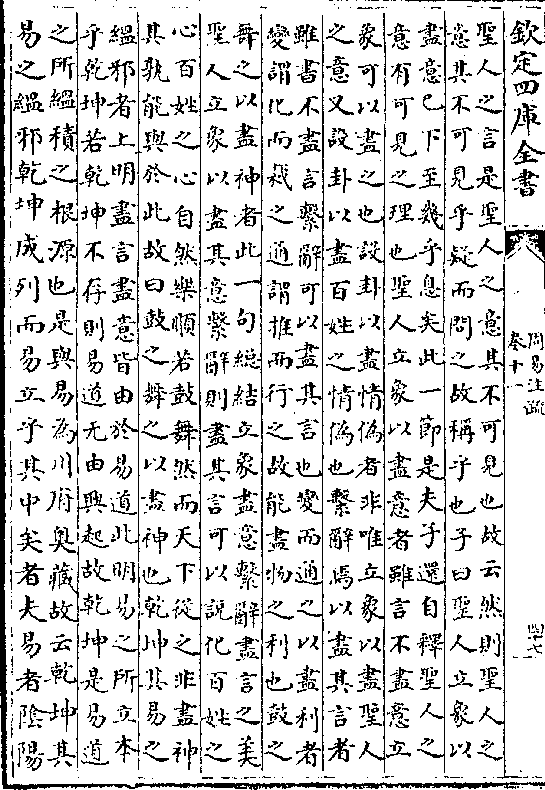 欽定四庫全書
周易注疏
卷十一
四七
聖人之言是聖人之意其不可見也故云然則聖人之
意其不可見乎疑而問之故稱乎也子曰聖人立象以
盡意已下至幾乎息矣此一節是夫子還自釋聖人之
意有可見之理也聖人立象以盡意者雖言不盡意立
象可以盡之也設卦以盡情偽者非唯立象以盡聖人
之意又設卦以盡百姓之情偽也繫辭焉以盡其言者
雖書不盡言繫辭可以盡其言也變而通之以盡利者
變謂化而裁之通謂推而行之故能盡物之利也鼓之
舞之以盡神者此一句總結立象盡意繫辭盡言之美
聖人立象以盡其意繫辭則盡其言可以說化百姓之
心百姓之心自然樂順若鼓舞然而天下從之非盡神
其孰能與於此故曰鼓之舞之以盡神也乾坤其易之
緼邪者上明盡言盡意皆由於易道此明易之所立本
乎乾坤若乾坤不存則易道无由興起故乾坤是易道
之所緼積之根源也是與易為川府奥藏故云乾坤其
易之緼邪乾坤成列而易立乎其中矣者夫易者陰陽